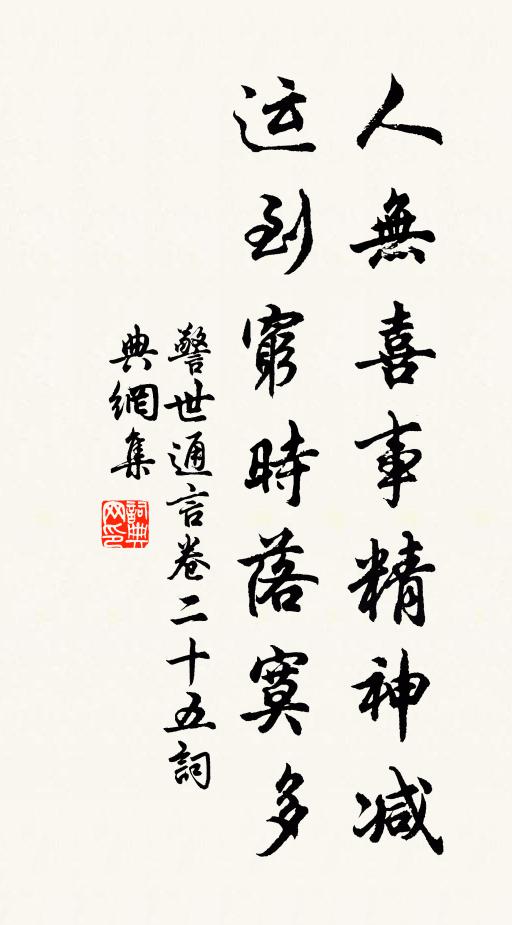 人無喜事精神减
运到窮時落寞多
警世通言卷二十五詞
典網集
詞典网印